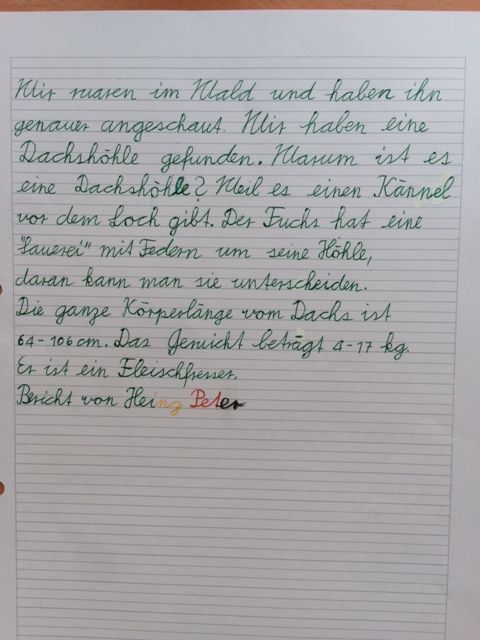 Wir waren im Wald und haben ihn
genauer angeschaut. Wir haben eine
Dachshöhle gefunden. Warum ist es
eine Dachshöhle? Weil es einen Kännel
vor dem Loch gibt. Der Fuchs hat eine
"Sauerei" mit Federn um seine Höhle,
daran kann man sie unterscheiden.
Die ganze Körperlänge vom Dachs ist
64-106 cm. Das Gewicht beträgt 4-17 kg.
Er ist ein Fleischfresser.
Bericht von Heinz Peter